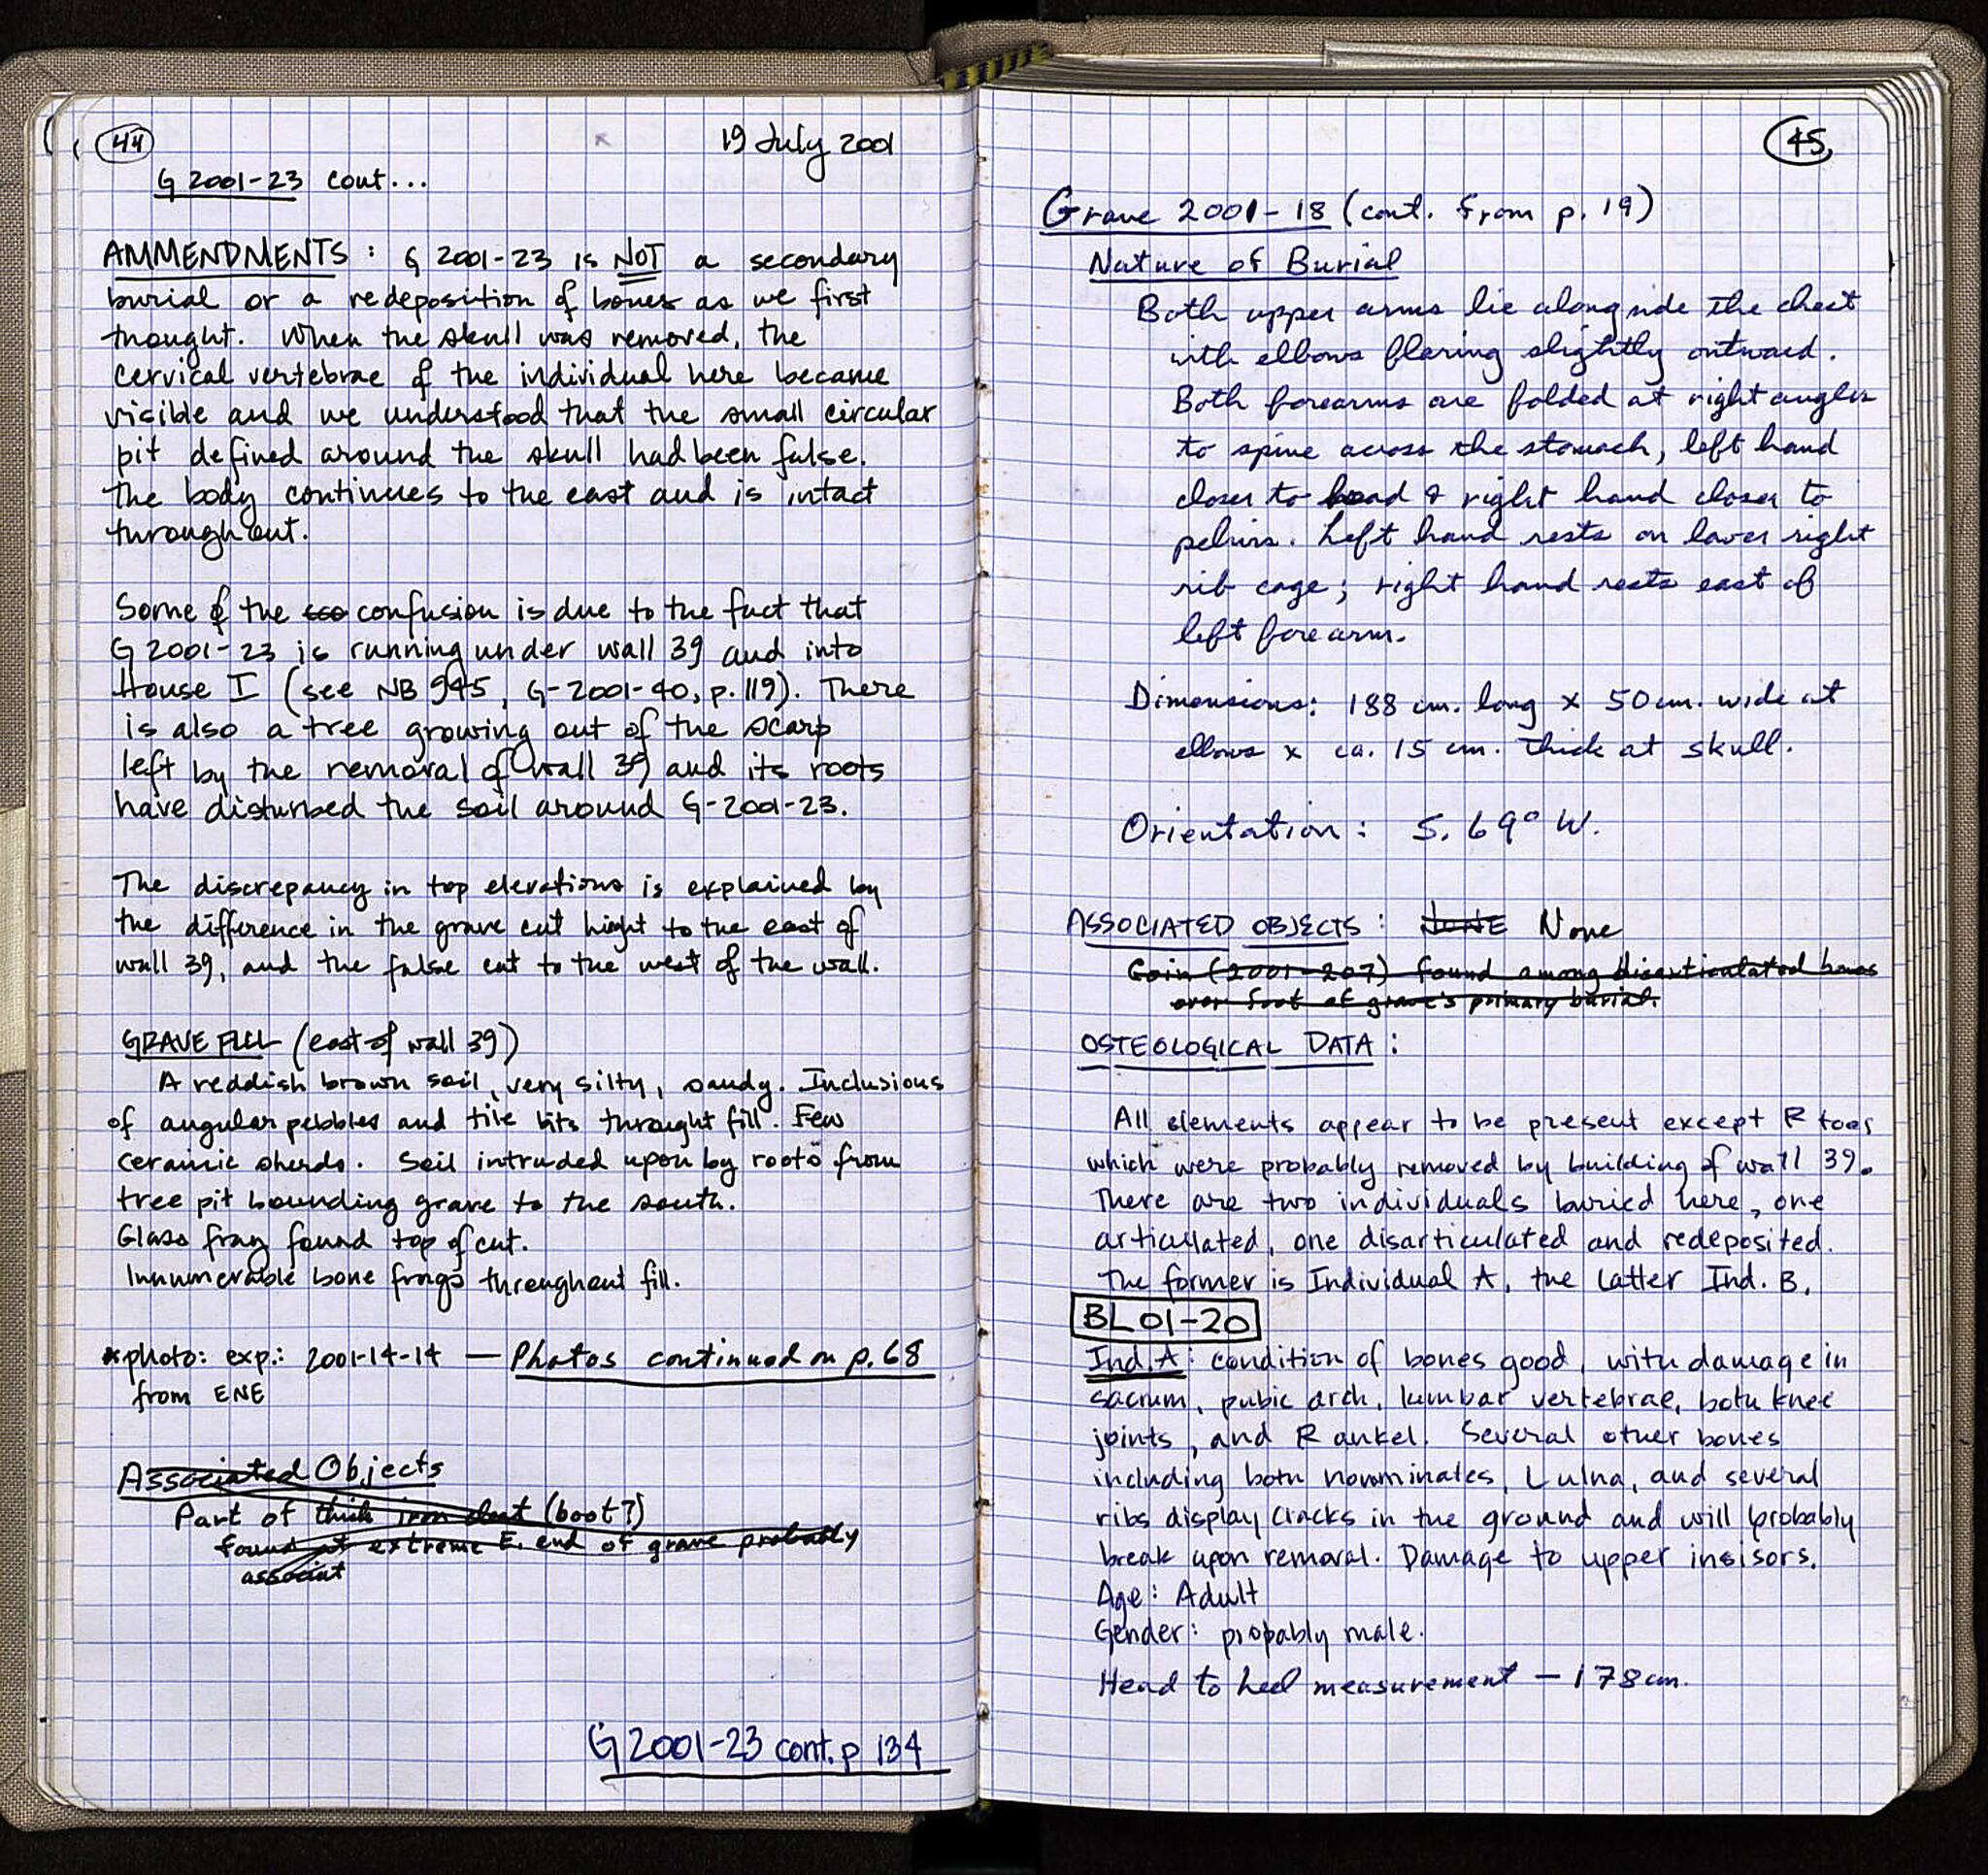 44
19 July 2001
G 2001-23 cont...
AMMENDMENTS: G 2001-23 is NOT a secondary
burial or a redeposition of bones as we first
thought. When the skull was removed, the
cervical vertebrae of the individual here became
visible and we understood that the small circular
pit defined around the skull had been false.
The body continues to the east and is intact
throughout.
Some of the confusion is due to the fact that
G 2001-23 is running under wall 39 and into
House I (see NB 945, G-2001-40, p. 119). There
is also a tree growing out of the scarp
left by the removal of wall 39 and its roots
have disturbed the soil around G-2001-23.
The discrepancy in top elevations is explained by
the difference in the grave cut hieght to the east of
wall 39, and the false cut to the west of the wall.
GRAVE FILL (east of wall 39)
A reddish brown soil, very silty, sandy. Inclusions
of angular pebbles and tile bits throught fill. Few
ceramic sherds. Soil intruded upon by roots from
tree pit bounding grave to the south.
Glass frag found top of cut.
Innumerable bone frags throughout fill.
*photo: exp.: 2001-14-14 — Photos continued on p. 68
from ENE
Associated Objects
Part of thick iron cleat (boot?)
found at extreme E. end of grave probably
associat
G 2001-23 cont. p 134
45
Grave 2001-18 (cont. from p. 19)
Nature of Burial
Both upper arms lie alongside the chest
with elbows flaring slightly outward.
Both forearms are folded at right angles
to spine across the stomach, left hand
closer to head & right hand closer to
pelvis. Left hand rests on lower right
rib cage; right hand rests east of
left forearm.
Dimensions: 188 cm. long x 50 cm. wide at
elbows x ca. 15 cm. thick at skull.
Orientation: S. 69° W.
ASSOCIATED OBJECTS: NONE None
Coin (2001-207) found among disarticulated bones
over foot of grave's primary burial.
OSTEOLOGICAL DATA:
All elements appear to be present except R toes
which were probably removed by building of wall 39.
There are two individuals buried here, one
articulated, one disarticulated and redeposited.
The former is Individual A, the latter Ind. B.
BL 01-20
Ind. A: condition of bones good, with damage in
sacrum, pubic arch, lumbar vertebrae, both knee
joints, and R ankel. Several other bones
including both nonminates, L ulna, and several
ribs display cracks in the ground and will probably
break upon removal. Damage to upper insisors.
Age: Adult
Gender: probably male.
Head to heel measurement — 178 cm.